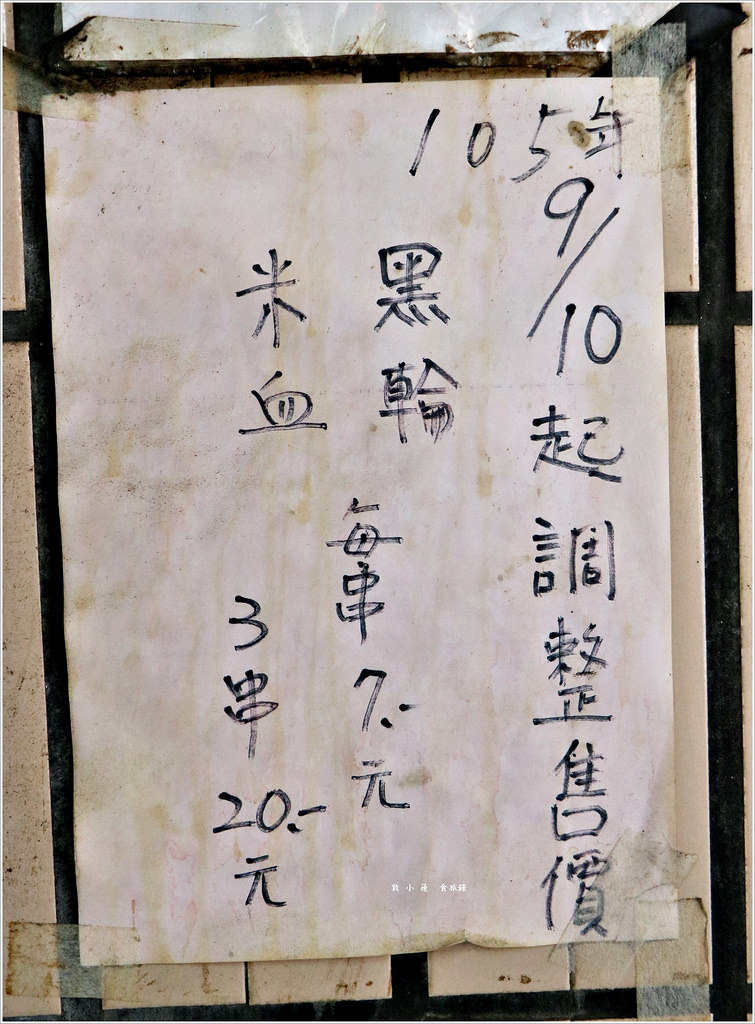 105年
9/10起調整售價
黑輪
米血
每串7.-元
3串20.-元
敦小蓮 食旅錄